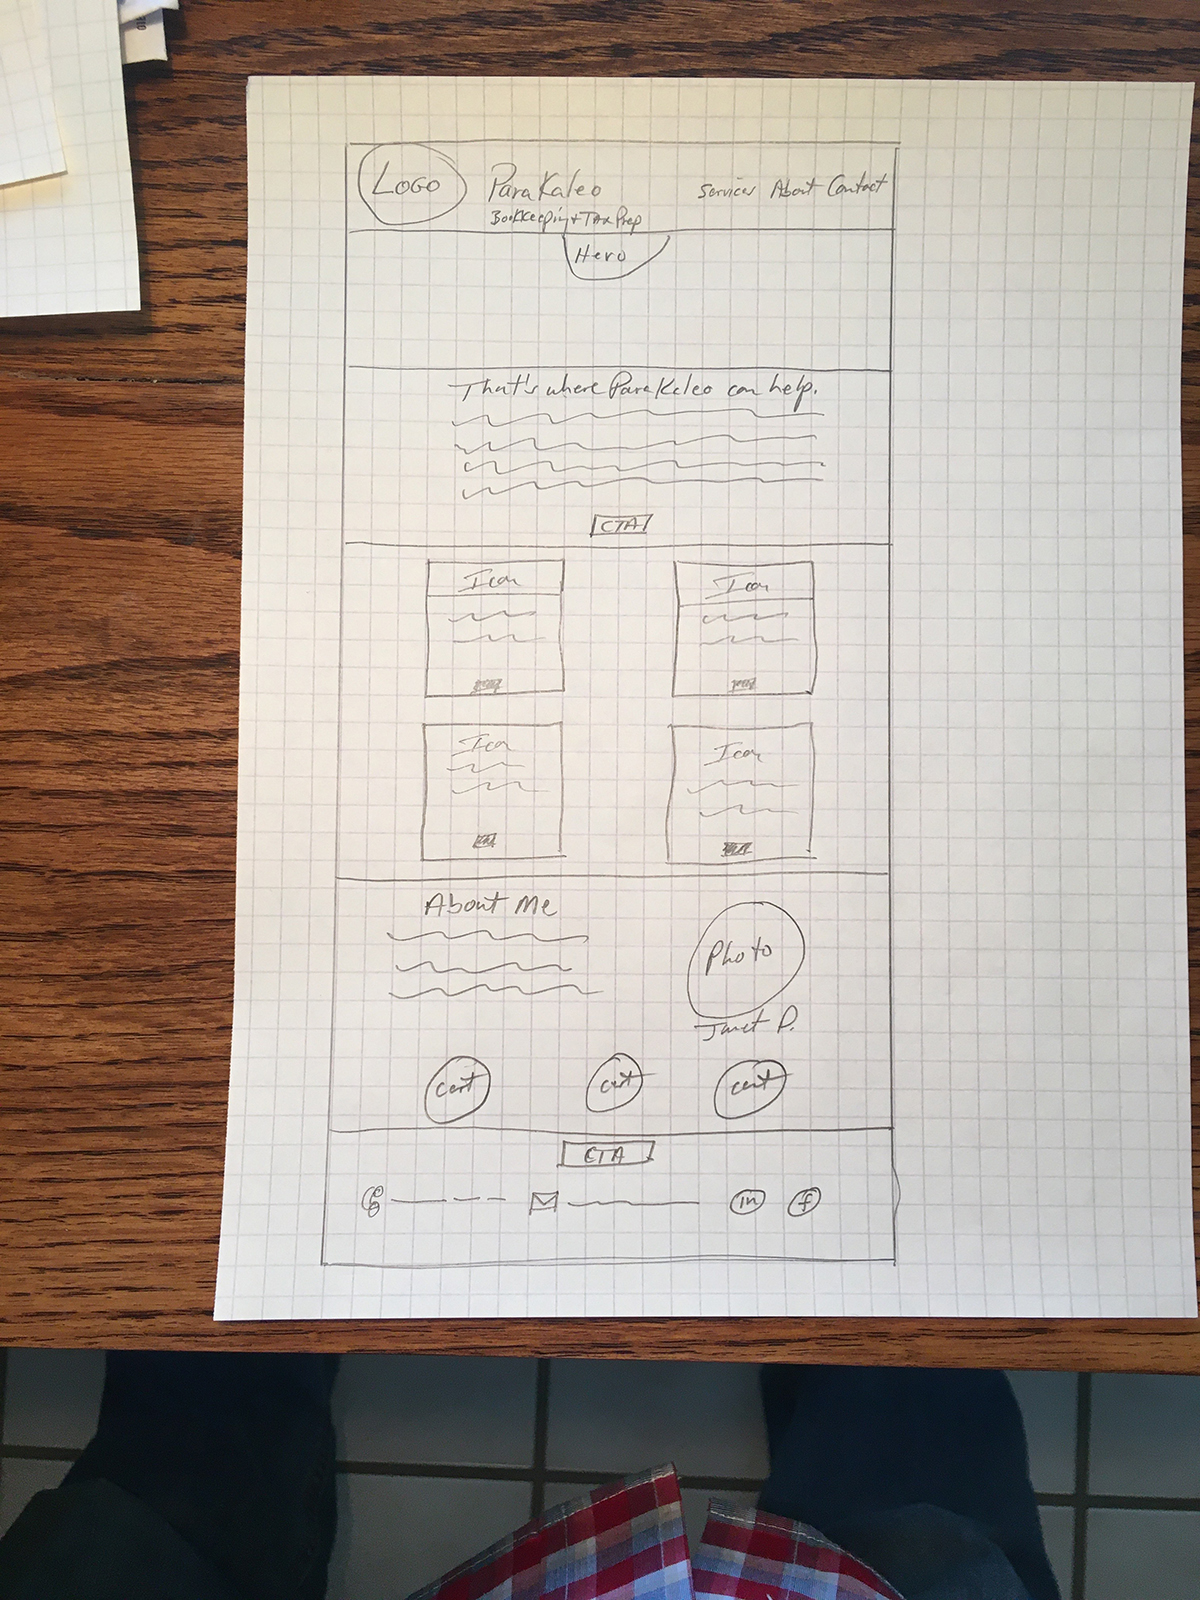 LOGO
ParaKaleo
Bookkeeping + Tax Prep
Services About Contact
Hero
That's where ParaKaleo can help.
CTA
Icon
Icon
Icon
Icon
About Me
Photo
Janet P.
cert
cert
cert
CTA
in
f